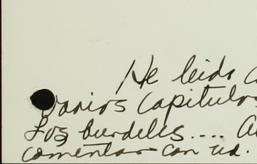 He leido
varios capitulos
Los burdeles....
comentar con ud.